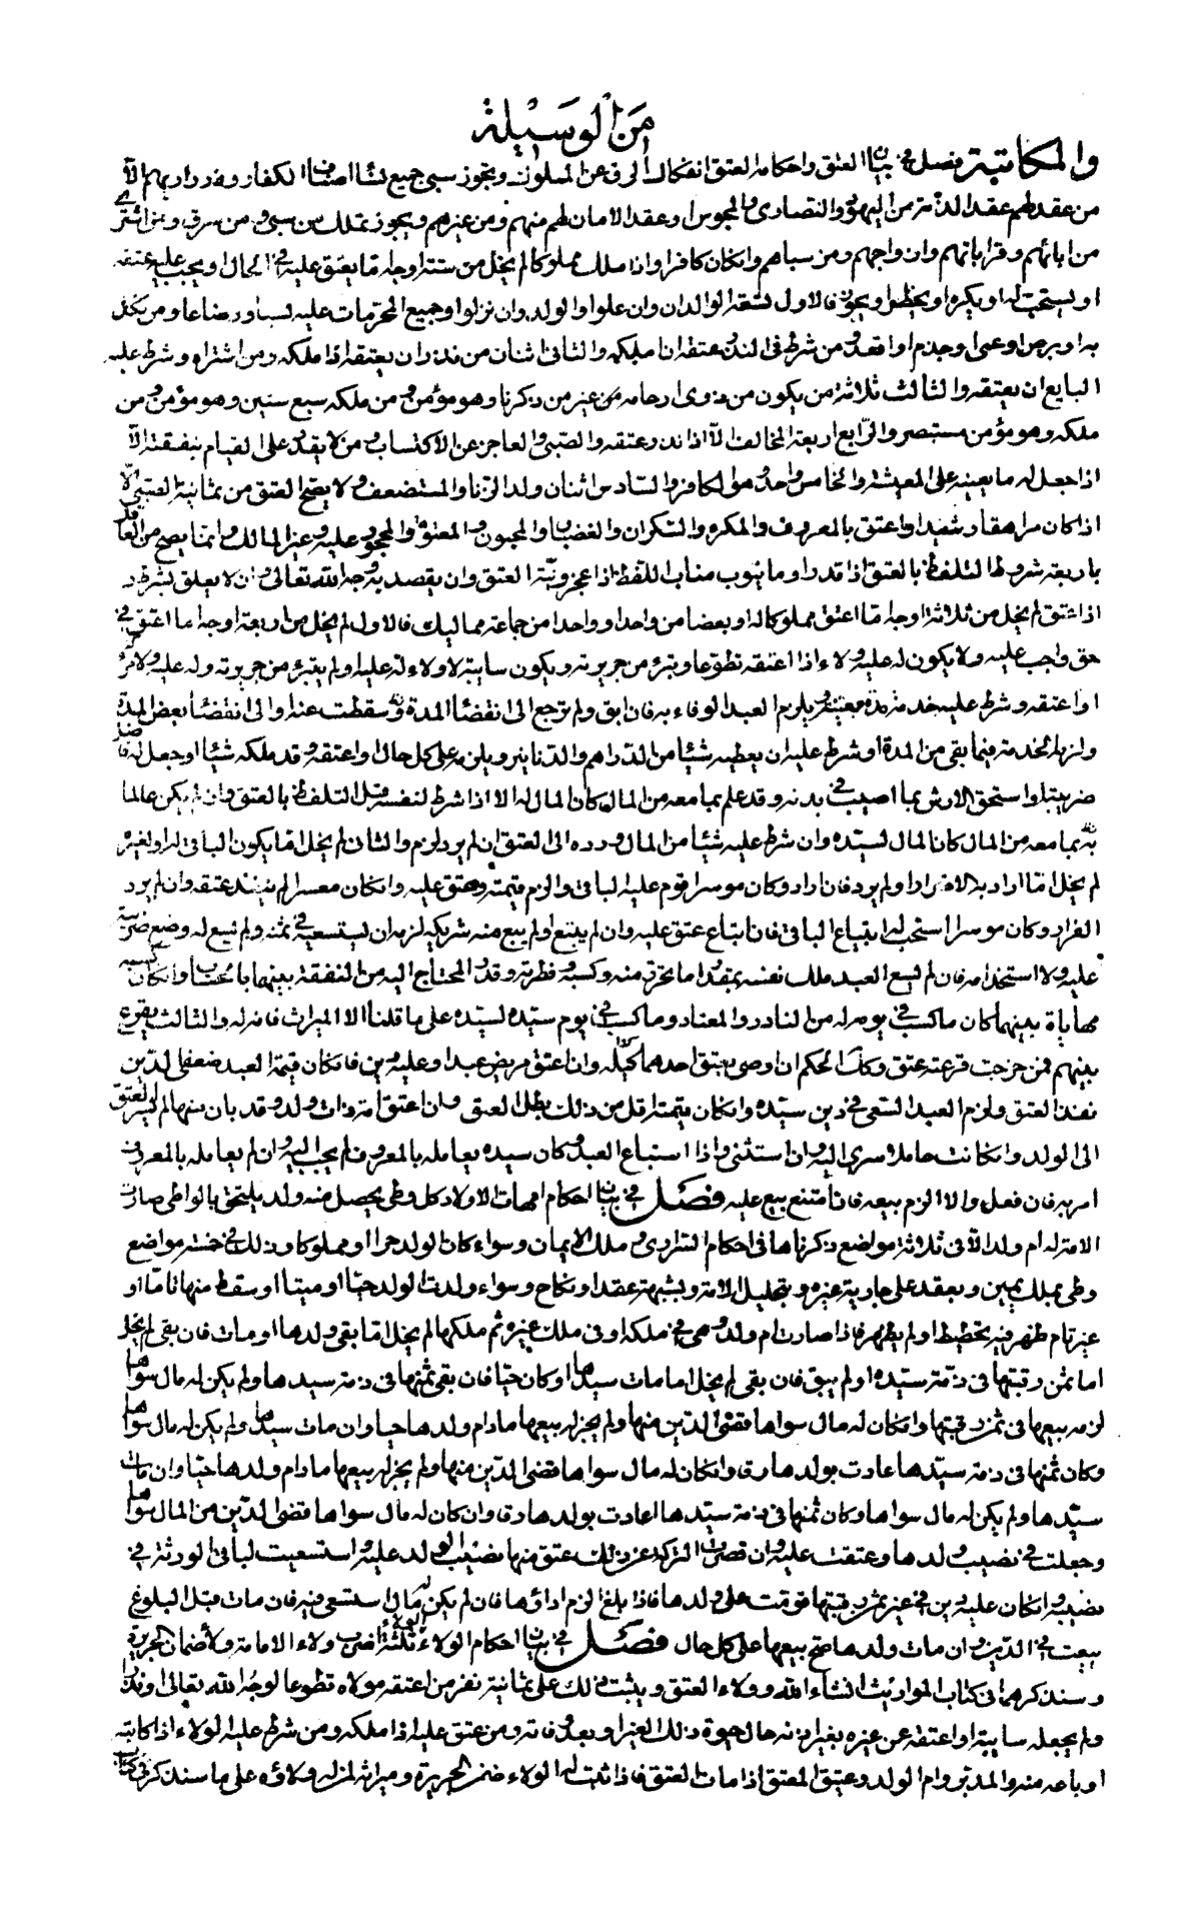 من الوسيلة
والمكاتبة فصل في بيان العتق واحكامه العتق انفكاك الرق عن المملوك ويجوز سبي جميع اصناف الكفار وهو في داريهم الا
من عقد لهم عقد الذمة من اليهود والنصارى والمجوس او عقد الامان لهم منهم ومن غيرهم ويجوز تملك من سبي ومن سرق ومن اشتري
من ابائهم وقراباتهم وازواجهم ومن سباهم وان كان كافرا واذا ملك مملوكا لم يخل من ستة اوجه اما يعتق عليه في الحال او يجب عليه عتقه
او يستحب له او يكره او يحظر او يجوز فالاول تسعة الوالدان وان علوا والولد وان نزلوا وجميع المحرمات عليه نسبا ورضاعا ومن نكل
به او برص او عمى او جذم او اقعد ومن شرط في النذر عتقه ان ملكه والثاني اثنان من نذر ان يعتقه اذا ملكه ومن اشتراه وشرط عليه
البايع ان يعتقه والثالث ثلاثة من يكون من ذوى ارحامه من غير من ذكرنا وهو مؤمن ومن ملكه سبع سنين وهو مؤمن ومن
ملكه وهو مؤمن مستبصر والرابع اربعة المخالف الا اذا نذر عتقه والصبي والعاجز عن الاكتساب ومن لا يقدر على القيام بنفقته الا
اذا جعل له ما يعينه على المعيشة والخامس واحد وهو الكافر والسادس اثنان ولد الزنا والمستضعف ولا يصح العتق من ثمانية الصبي الا
اذا كان مراهقا رشيدا واعتق بالمعروف والمكره والسكران والغضبان والمجنون والمعتوه والمحجور عليه وغير المالك وانما يصح من العاقل
باربعة شروط التلفظ بالعتق اذا قدر او ما ينوب مناب اللفظ اذا عجز ونية العتق وان يقصد به وجه الله تعالى وان لا يعلق بشرط و
اذا عتق لم يخل من ثلاثة اوجه اما اعتق مملوكا له او بعضا من واحد او واحدا من جماعة مماليك فالاول لم يخل من اربعة اوجه اما اعتق في
حق واجب عليه ولا يكون له عليه ولاء اذا اعتقه تطوعا وتبرء من جريرته ويكون سايبة لا ولاء له عليه او لم يتبرء من جريرته وله عليه ولاء
او اعتقه وشرط عليه خدمة مدة معينة ويلزم العبد الوفاء به فان ابق ولم يرجع الى انقضاء المدة سقطت عنه او الى انقضاء بعض المدة
ولزمه الخدمة فيما بقى من المدة او شرط عليه ان يعطيه شيئا من الدراهم والدنانير ويلزمه على كل حال او اعتقه وقد ملكه شيئا او جعل له فاضل
ضريبة او استحق الارش بما اصيب في بدنه وقد علم بما معه من المال كان المال له الا اذا شرط لنفسه قبل التلفظ بالعتق وان لم يكن عالما
بما معه من المال كان المال لسيده وان شرط عليه شيئا من المال ورده الى العتق ان لم يرد لزم والثاني لم يخل اما يكون الباقي له او لغيره
لم يخل اما اراد به الاضرار او لم يرد فان اراد وكان موسرا قوم عليه الباقي والزم قيمته وعتق عليه وان كان معسرا لم ينفذ عتقه وان لم يرد
الضرار وكان موسرا استحب له ابتياع الباقي فان ابتاع عتق عليه وان لم يبتع او لم يبع منه شريكه لزمه ان يستسعيه في ثمنه ولم يسع له وضع ضريبة
عليه ولا استخدامه فان لم يسع العبد ملك نفسه بمقدار ما تحرر منه وكسبه وفطرته وقدر المحتاج اليه من النفقة بينهما بالحساب وان كان
مهاياة بينهما كان ما كسب في يومه له من النادر والمعتاد وما كسب في يوم سيده لسيده على ما قلنا الا الميراث فانه له والثالث يقرع
بينهم فمن خرجت قرعته عتق وكذلك الحكم ان اوصى بعتق احدهما وان اعتق مريض عبدا وعليه دين فان كان قيمة العبد ضعفي الدين
نفذ العتق ولزم العبد السعي في دين سيده وان كان قيمته اقل من ذلك بطل العتق وان اعتق امة ذات ولد وقد بان منها لم يسر العتق
الى الولد وان كانت حاملا سرى اليه وان استثنى واذا استباع العبد وكان سيده يعامله بالمعروف لم يجب اليه وان لم يعامله بالمعروف
امر به فان فعل والا الزم بيعه فان امتنع بيع عليه فصل في بيان احكام امهات الاولاد كل وطى يحصل منه ولد يلتحق بالواطى صارت
الامة له ام ولد الا في ثلاثة مواضع ذكرناها في احكام السراري وملك الايمان وسواء كان الولد حرا او مملوكا وذلك في خمسة مواضع
وطى بملك يمين وبعقد على جارية غيره وبتحليل الامة وبشبهة عقد او نكاح وسواء ولدت الولد حيا او ميتا او سقط منها تاما او
غير تام ظهر فيه تخطيط او لم يظهر فاذا صارت ام ولد وهى في ملكه او في ملك غيره ثم ملكها لم يخل اما بقى ولدها او مات فان بقى لم يخل
اما ثمن رقبتها في ذمة سيده او لم يبق فان بقى لم يخل اما مات سيدها او كان حيا فان بقى ثمنها في ذمة سيدها ولم يكن له مال سواها
لزمه بيعها في ثمن رقبتها وان كان له مال سواها قضى الدين منها ولم يجز له بيعها ما دام ولدها حيا وان مات سيدها ولم يكن له مال سواها
وكان ثمنها في ذمة سيدها عادت بولدها رقا وان كان له مال سواها قضى الدين منها ولم يجز له بيعها ما دام ولدها حيا وان مات
سيدها ولم يكن له مال سواها وكان ثمنها في ذمة سيدها اعادت بولدها رقا وان كان له مال سواها قضى الدين من المال سواها
وجعلت في نصيب ولدها وعتقت عليه وان قصرت التركة عن ذلك عتق منها نصيب الولد عليه واستسعيت لباقي الورثة في
نصيبه وان كان عليه دين في غير ثمن رقبتها قومت على ولدها فاذا بلغ الزم اداؤها فان لم يكن له مال استسعى فيه فان مات قبل البلوغ
بيعت في الدين وان مات ولدها صح بيعها على كل حال فصل في بيان احكام الولاء الولاء ثلثة اضرب ولاء الامامة ولاء ضمان الجريرة
وسنذكرهما في كتاب المواريث انشاء الله وولاء العتق ويثبت ذلك على ثمانية نفر من اعتقه مولاه تطوعا لوجه الله تعالى او نذرا
ولم يجعله سايبة او اعتقه عن غيره بغير اذنه حال حيوة ذلك الغير او بعد وفاته ومن عتق عليه اذا ملكه ومن شرط عليه الولاء اذا كاتبه
او باعه منه والمدبر وام الولد وعتيق المعتق اذا مات المعتق فاذا ثبت له الولاء ضمن الجريرة وميراثه له وولاؤه على ما سنذكر في كتاب